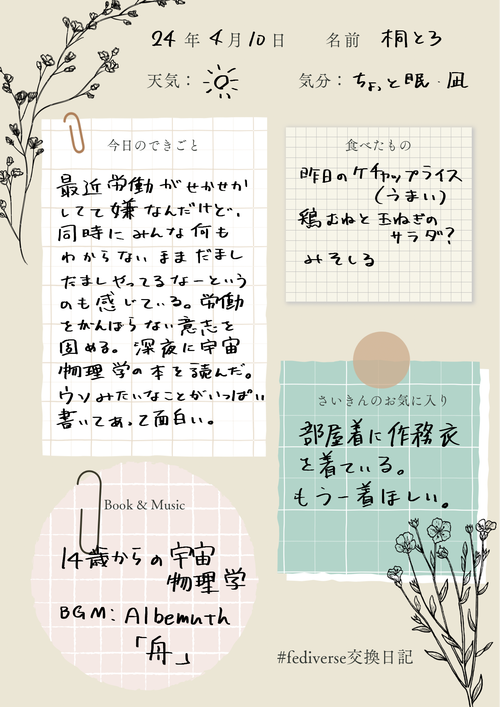 24年4月10日 名前 桐とろ
天気： 気分：ちょっと眠・凪
今日のできごと
最近労働がせかせか
してて嫌なんだけど、
同時にみんな何も
わからないままだまし
だましやってるなーという
のも感じている。労働
をがんばらない意志を
固める。深夜に宇宙
物理学の本を読んだ。
ウソみたいなことがいっぱい
書いてあって面白い。
食べたもの
昨日のケチャップライス
(うまい)
鶏むねと玉ねぎの
サラダ?
みそしる
さいきんのお気に入り
部屋着に作務衣
を着ている。
もう一着ほしい。
Book & Music
14歳からの宇宙
物理学
BGM: Albemuth
「舟」
#fediverse交換日記